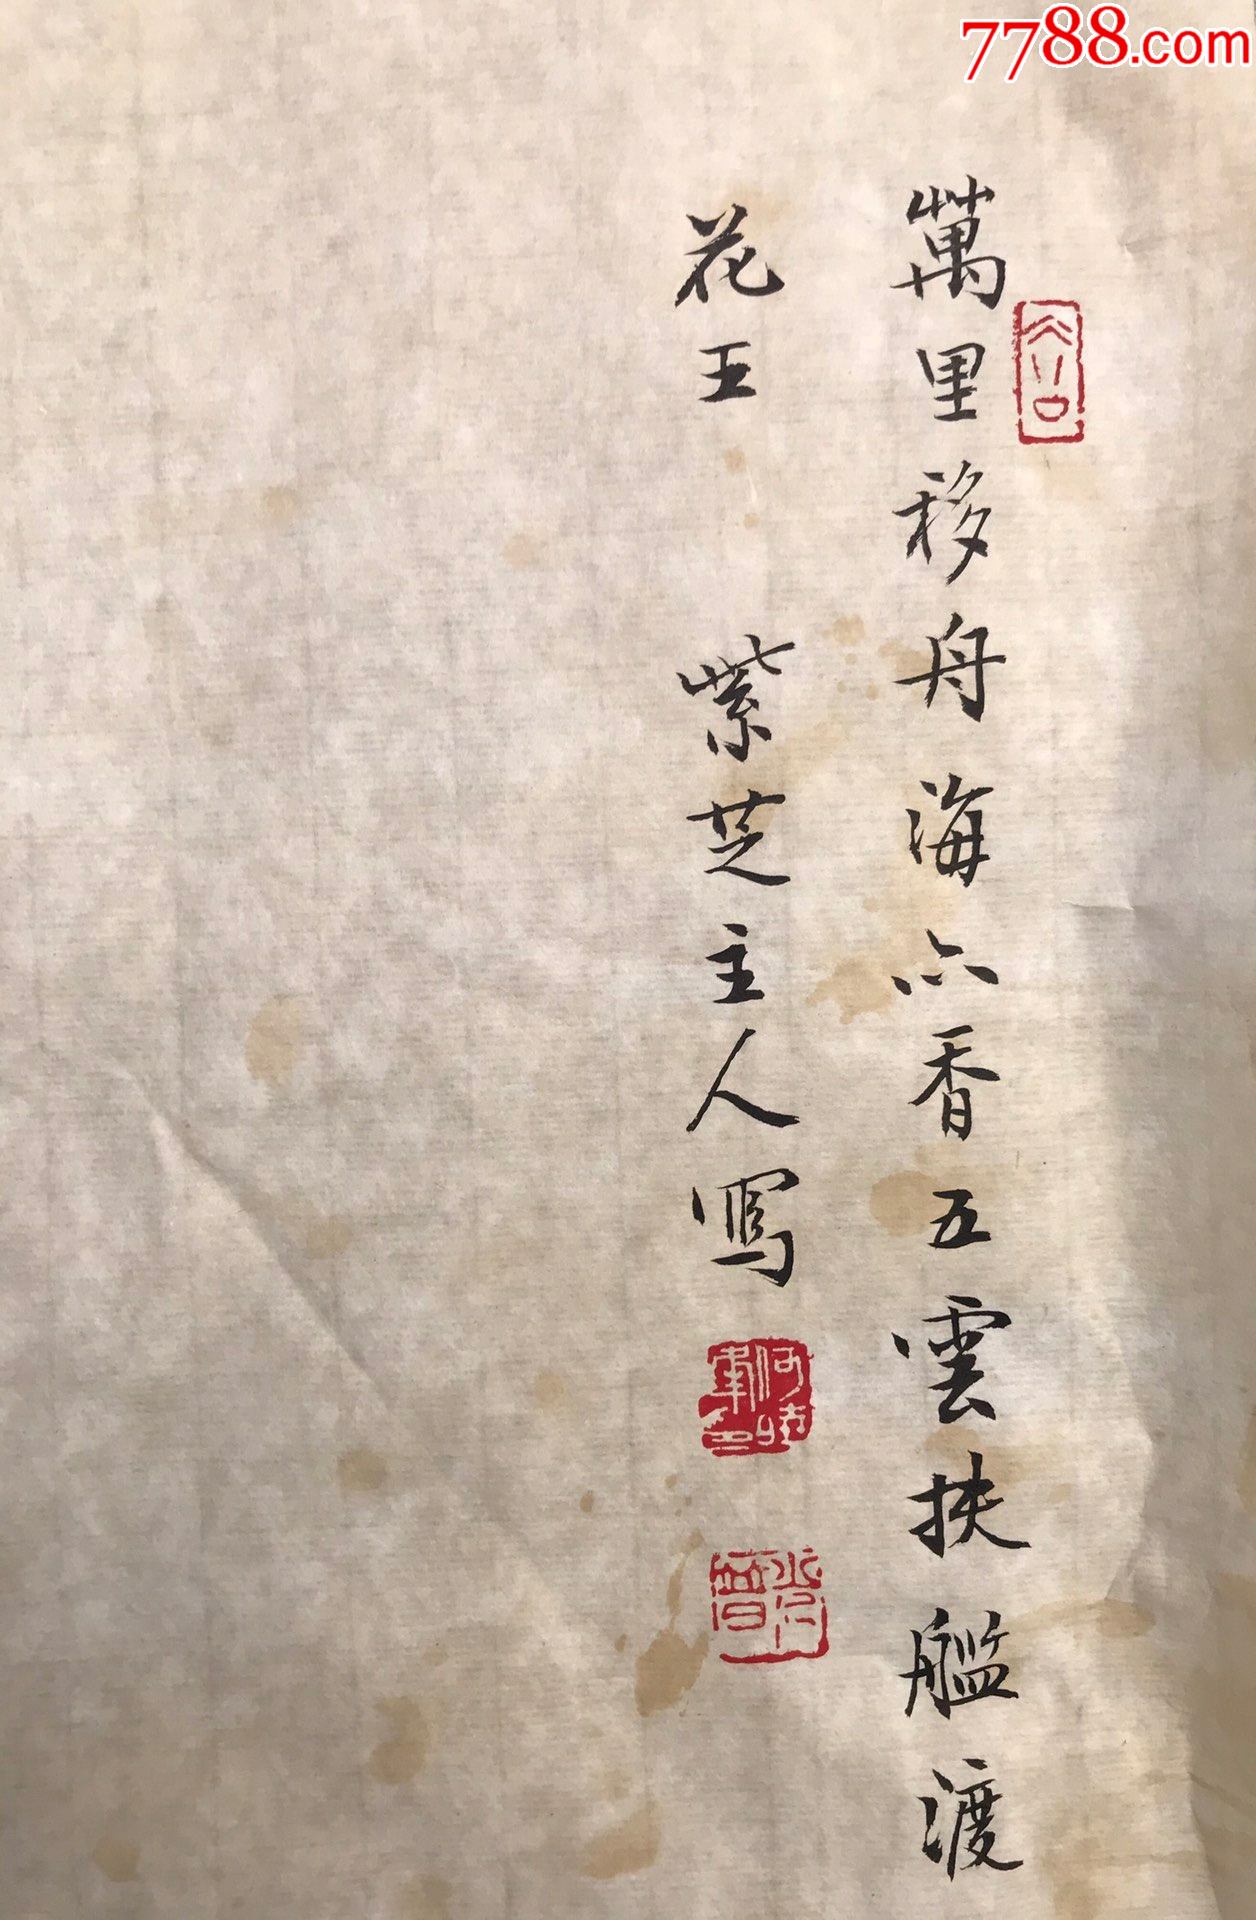 7788.com
萬里移舟海亦香五雲扶艦渡
花王
紫芝主人寫